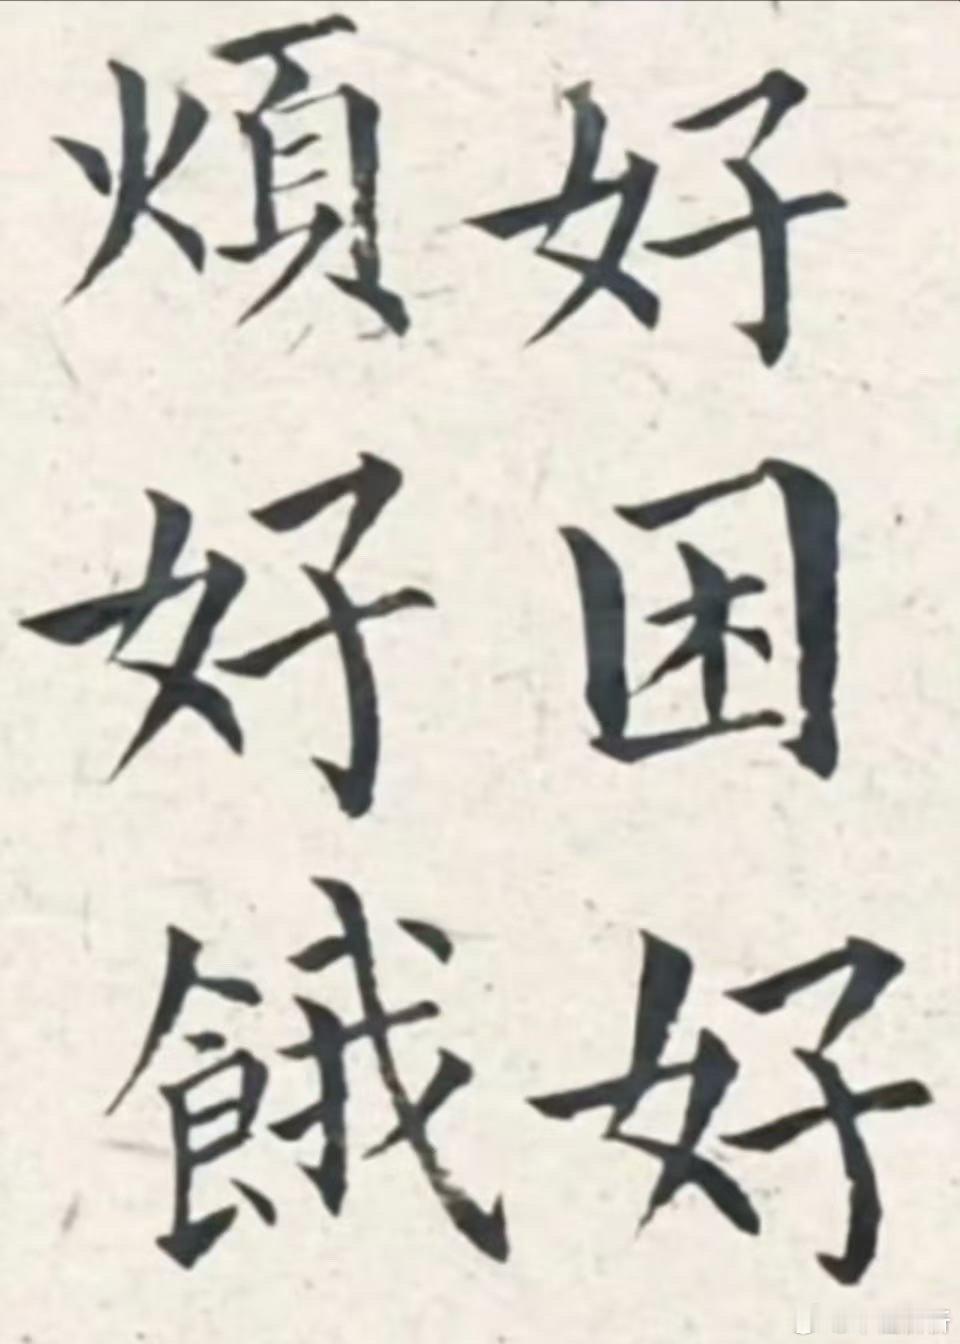 好困好
煩好餓